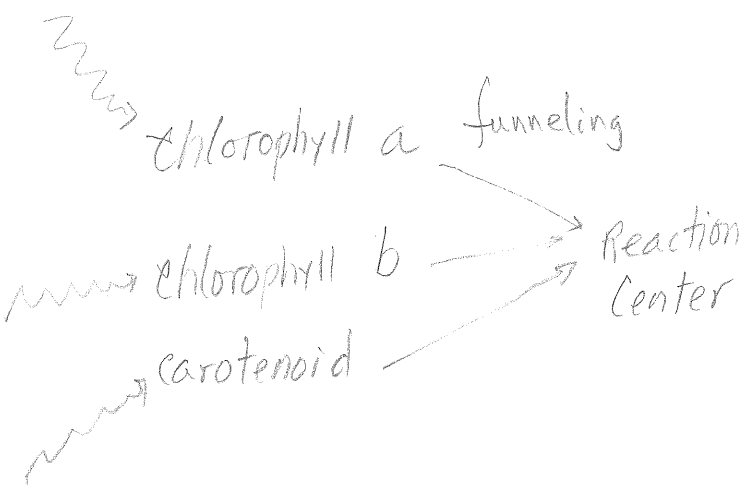 chlorophyll a
funneling
chlorophyll b
Reaction
Center
carotenoid